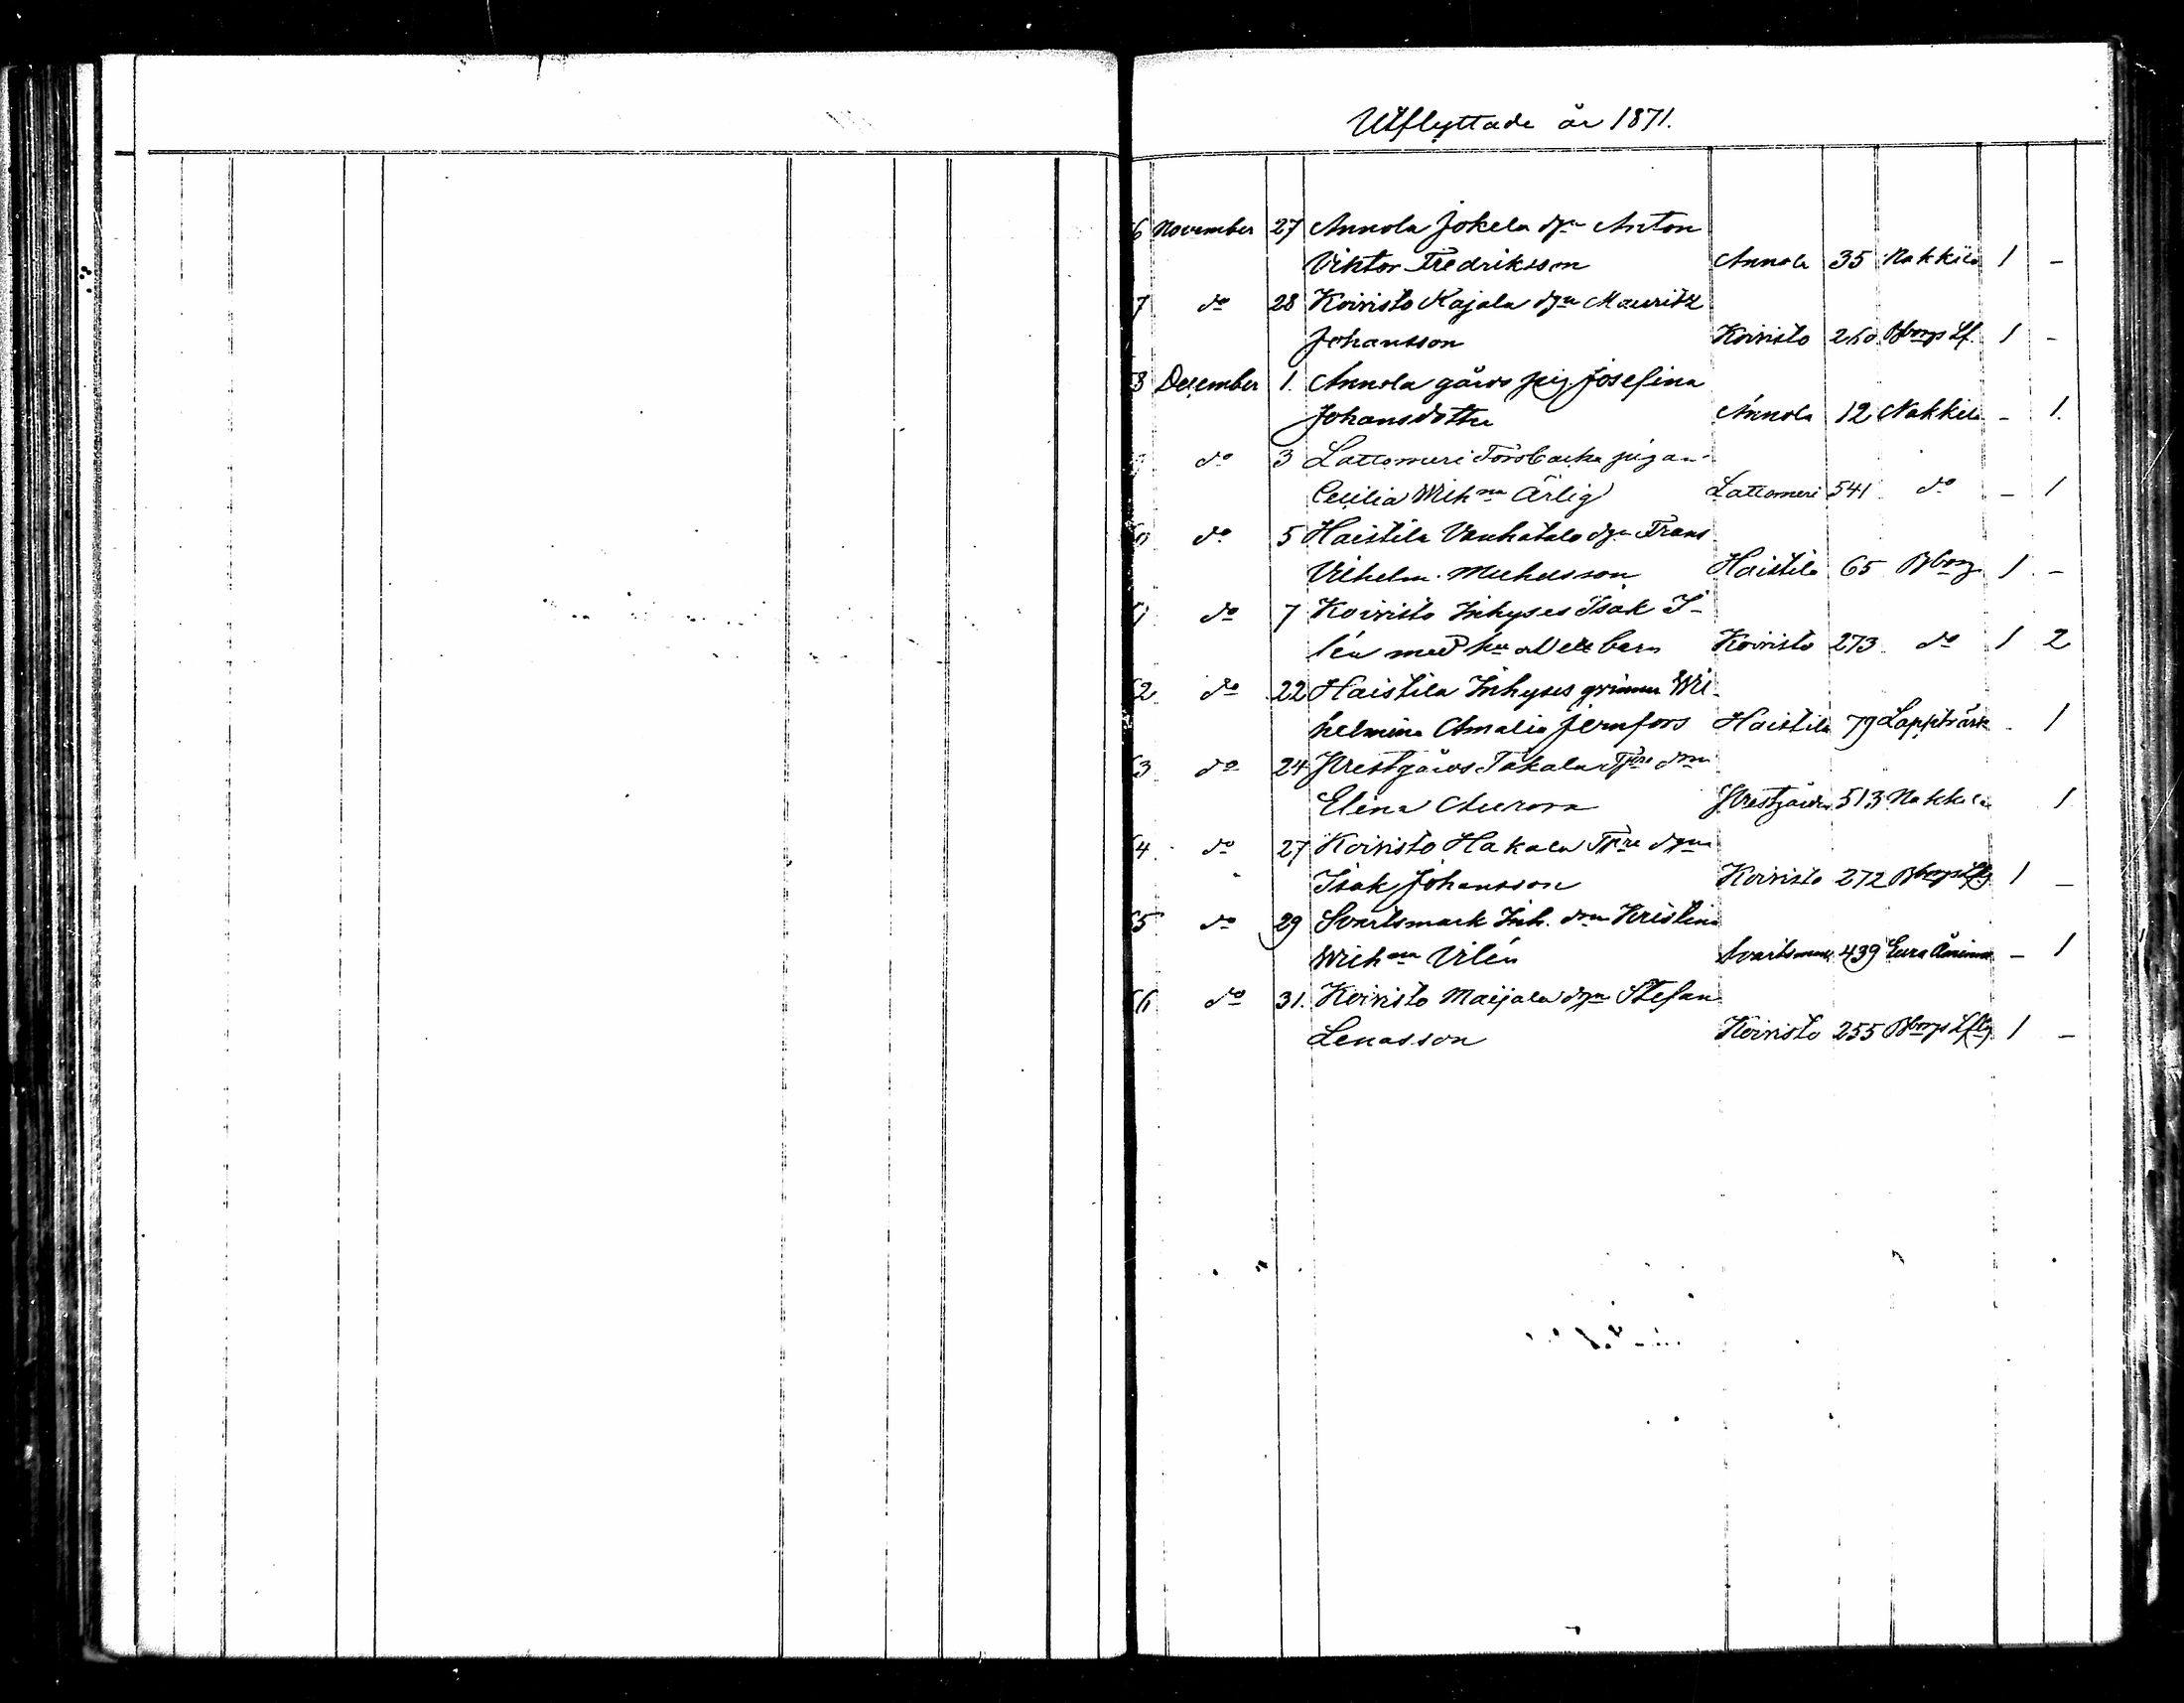 Utflyttade år 1871.
6 November 27 Annola Jokela dgn Anton
Viktor Fredriksson Annola 35 Nakkila 1 -
7 do 28 Koivisto Kajala dgn Mauritz
Johansson Koivisto 260 Bborgs Lf. 1 -
8 December 1. Annola gårds pig. Josefina
Johansdotter Annola 12 Nakkila - 1.
do 3 Lattomeri Torsbacka pigan
Cecilia Wilhna Ärlig Lattomeri 541 do - 1
do 5 Haistila Vanhatalo dgn Frans
Vilhelm Michelsson Haistila 65 Bborg 1 -
do 7 Koivisto Inhyses Isak I-
lén med hu o barn Koivisto 273 do 1 2
2 do 22 Haistila Inhyses qvinnan Wil-
helmina Amalia Jernfors Haistila 79 Lappfvärk - 1
3 do 24 Prestgårds Takala Tpre dom
Elina Aurora Prestgården 513 Nakkila 1
4 do 27 Koivisto Hakala Tpre dgn
Isak Johansson Koivisto 272 Bborgs Lfg 1 -
5 do 29 Svartsmark Inh. don Kristina
Wilhna Vilén Svartsmark 439 Eura Åminne - 1
6 do 31. Koivisto Maijala dgn Stefan
Lenasson Koivisto 255 Bborgs Lfg 1 -